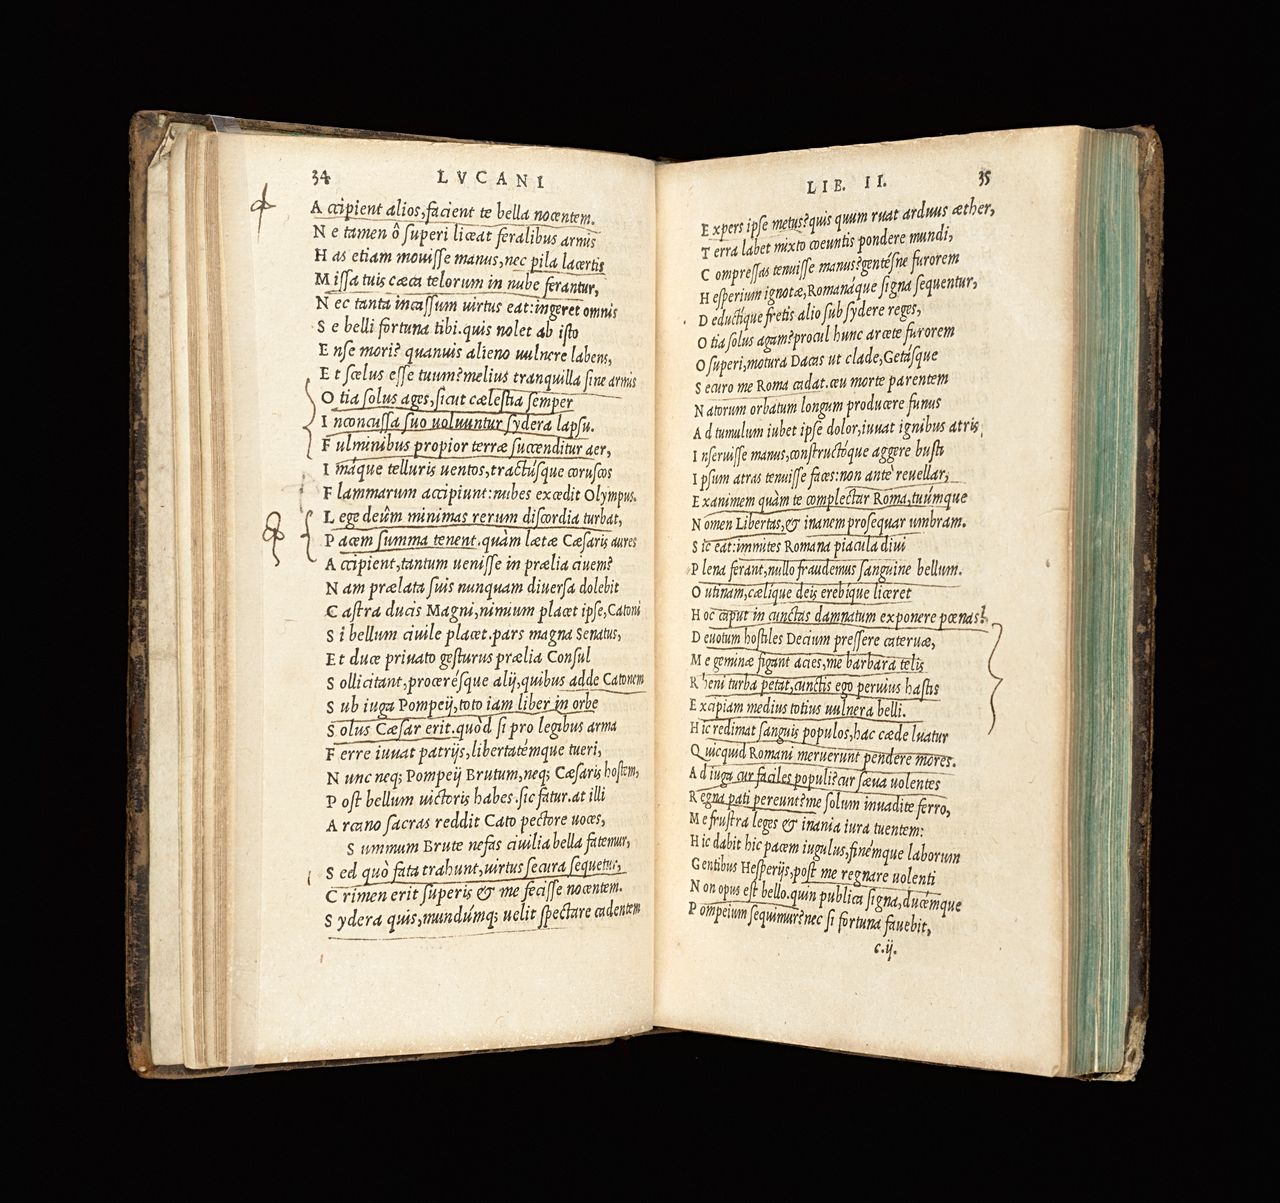 34 LVCANI
Accipient alios, facient te bella nocentem.
Ne tamen ô superi liceat feralibus armis
Has etiam mouisse manus, nec pila lacertis
Missa tuis cæca telorum in nube ferantur,
Nec tanta incassum uirtus eat: ingeret omnis
Se belli fortuna tibi. quis nolet ab isto
Ense mori? quanuis alieno uulnere labens,
Et scelus esse tuum? melius tranquilla sine armis
Otia solus ages, sicut cælestia semper
Inconcussa suo uoluuntur sydera lapsu.
Fulminibus propior terræ succenditur aer,
Imáque telluris uentos, tractúsque coruscos
Flammarum accipiunt: nubes excedit Olympus.
Lege deûm minimas rerum discordia turbat,
Pacem summa tenent. quàm lætæ Cæsaris aures
Accipient, tantum uenisse in prælia ciuem?
Nam prælata suis nunquam diuersa dolebit
Castra ducis Magni, nimium placet ipse, Catoni
Si bellum ciuile placet. pars magna Senatus,
Et duce priuato gesturus prælia Consul
Sollicitant, procerésque alij, quibus adde Catonem
Sub iuga Pompeij, toto iam liber in orbe
Solus Cæsar erit. quòd si pro legibus arma
Ferre iuuat patrijs, libertatémque tueri,
Nunc neq; Pompeij Brutum, neq; Cæsaris hostem,
Post bellum uictoris habes. sic fatur. at illi
Arcano sacras reddit Cato pectore uoces,
Summum Brute nefas ciuilia bella fatemur,
Sed quò fata trahunt, uirtus secura sequetur,
Crimen erit superis & me fecisse nocentem.
Sydera quis, mundúmq; uelit spectare cadentem
LIB. II. 35
Expers ipse metus? quis quum ruat arduus æther,
Terra labet mixto coeuntis pondere mundi,
Compressas tenuisse manus? gentésne furorem
Hesperium ignotæ, Romanáque signa sequentur,
Deductíque fretis alio sub sydere reges,
Otia solus agam? procul hunc arcete furorem
O superi, motura Dacas ut clade, Getásque
Securo me Roma cadat. ceu morte parentem
Natorum orbatum longum producere funus
Ad tumulum iubet ipse dolor, iuuat ignibus atris
Inseruisse manus, constructóque aggere busti
Ipsum atras tenuisse faces: non antè reuellar,
Exanimem quàm te complectar Roma, tuúmque
Nomen Libertas, & inanem prosequar umbram.
Sic eat: immites Romana piacula diui
Plena ferant, nullo fraudemus sanguine bellum.
O utinam, cælíque deis erebique liceret
Hoc caput in cunctas damnatum exponere pœnas!
Deuotum hostiles Decium pressere cateruæ,
Me geminæ figant acies, me barbara telis
Rheni turba petat, cunctis ego peruius hastis
Excipiam medius totius uulnera belli.
Hic redimat sanguis populos, hac cæde luatur
Quicquid Romani meruerunt pendere mores.
Ad iuga cur faciles populi? cur sæua uolentes
Regna pati pereunt? me solum inuadite ferro,
Me frustra leges & inania iura tuentem:
Hic dabit hic pacem iugulus, finémque laborum
Gentibus Hesperijs, post me regnare uolenti
Non opus est bello. quin publica signa, ducémque
Pompeium sequimur? nec si fortuna fauebit,
c.ij.